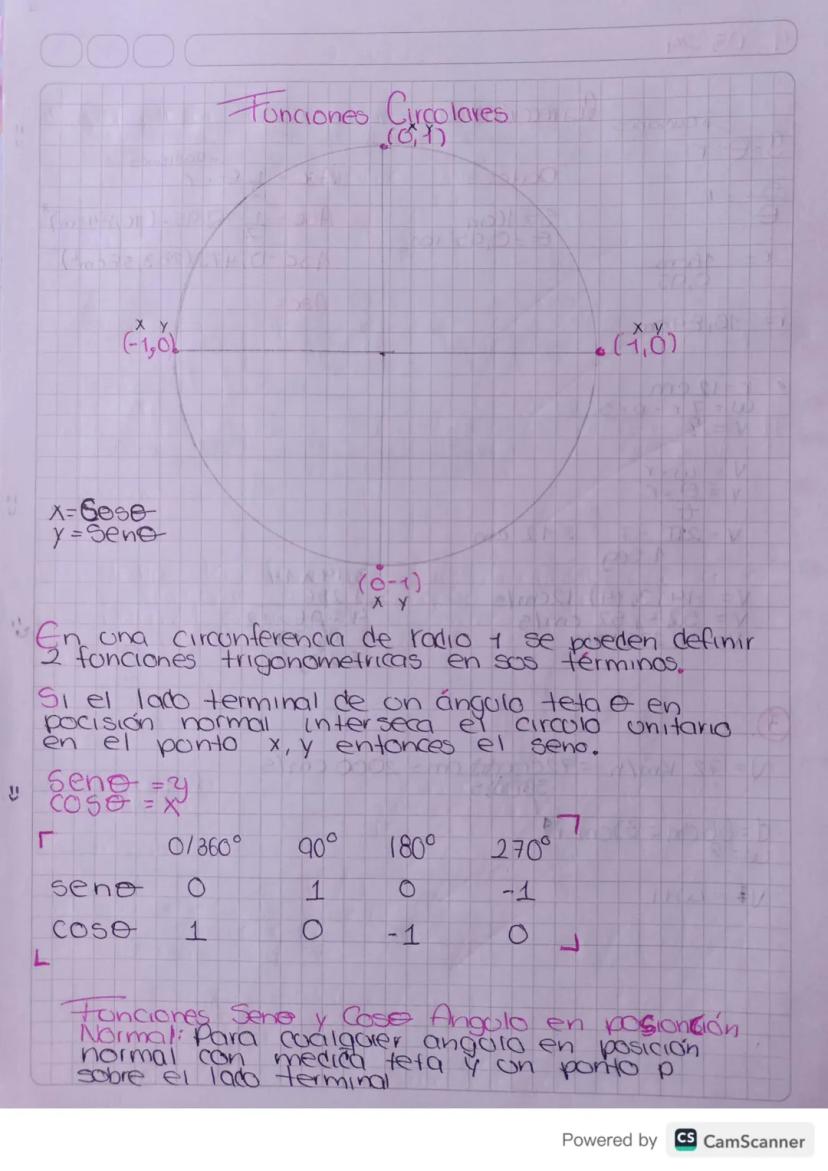 Funciones Circulares
X Y
(0,1)
X Y
(-1,0)
X Y
(1,0)
X=Cosθ
Y=Senθ
(0-1)
X Y
En una circunferencia de radio 1 se pueden definir
2 funciones trigonometricas en sus términos.
Si el lado terminal de un ángulo teta θ en
pocisión normal interseca el circulo unitario
en el punto x, y entonces el seno.
Senθ = y
COSθ = X
0/360° 90° 180° 270°
senθ 0 1 0 -1
COSθ 1 0 -1 0
Funciones Senθ y Cosθ Angulo en
Normal: Para cualquier angulo en posición
normal con medida teta y un punto p
sobre el lado terminal
Powered by CS CamScanner